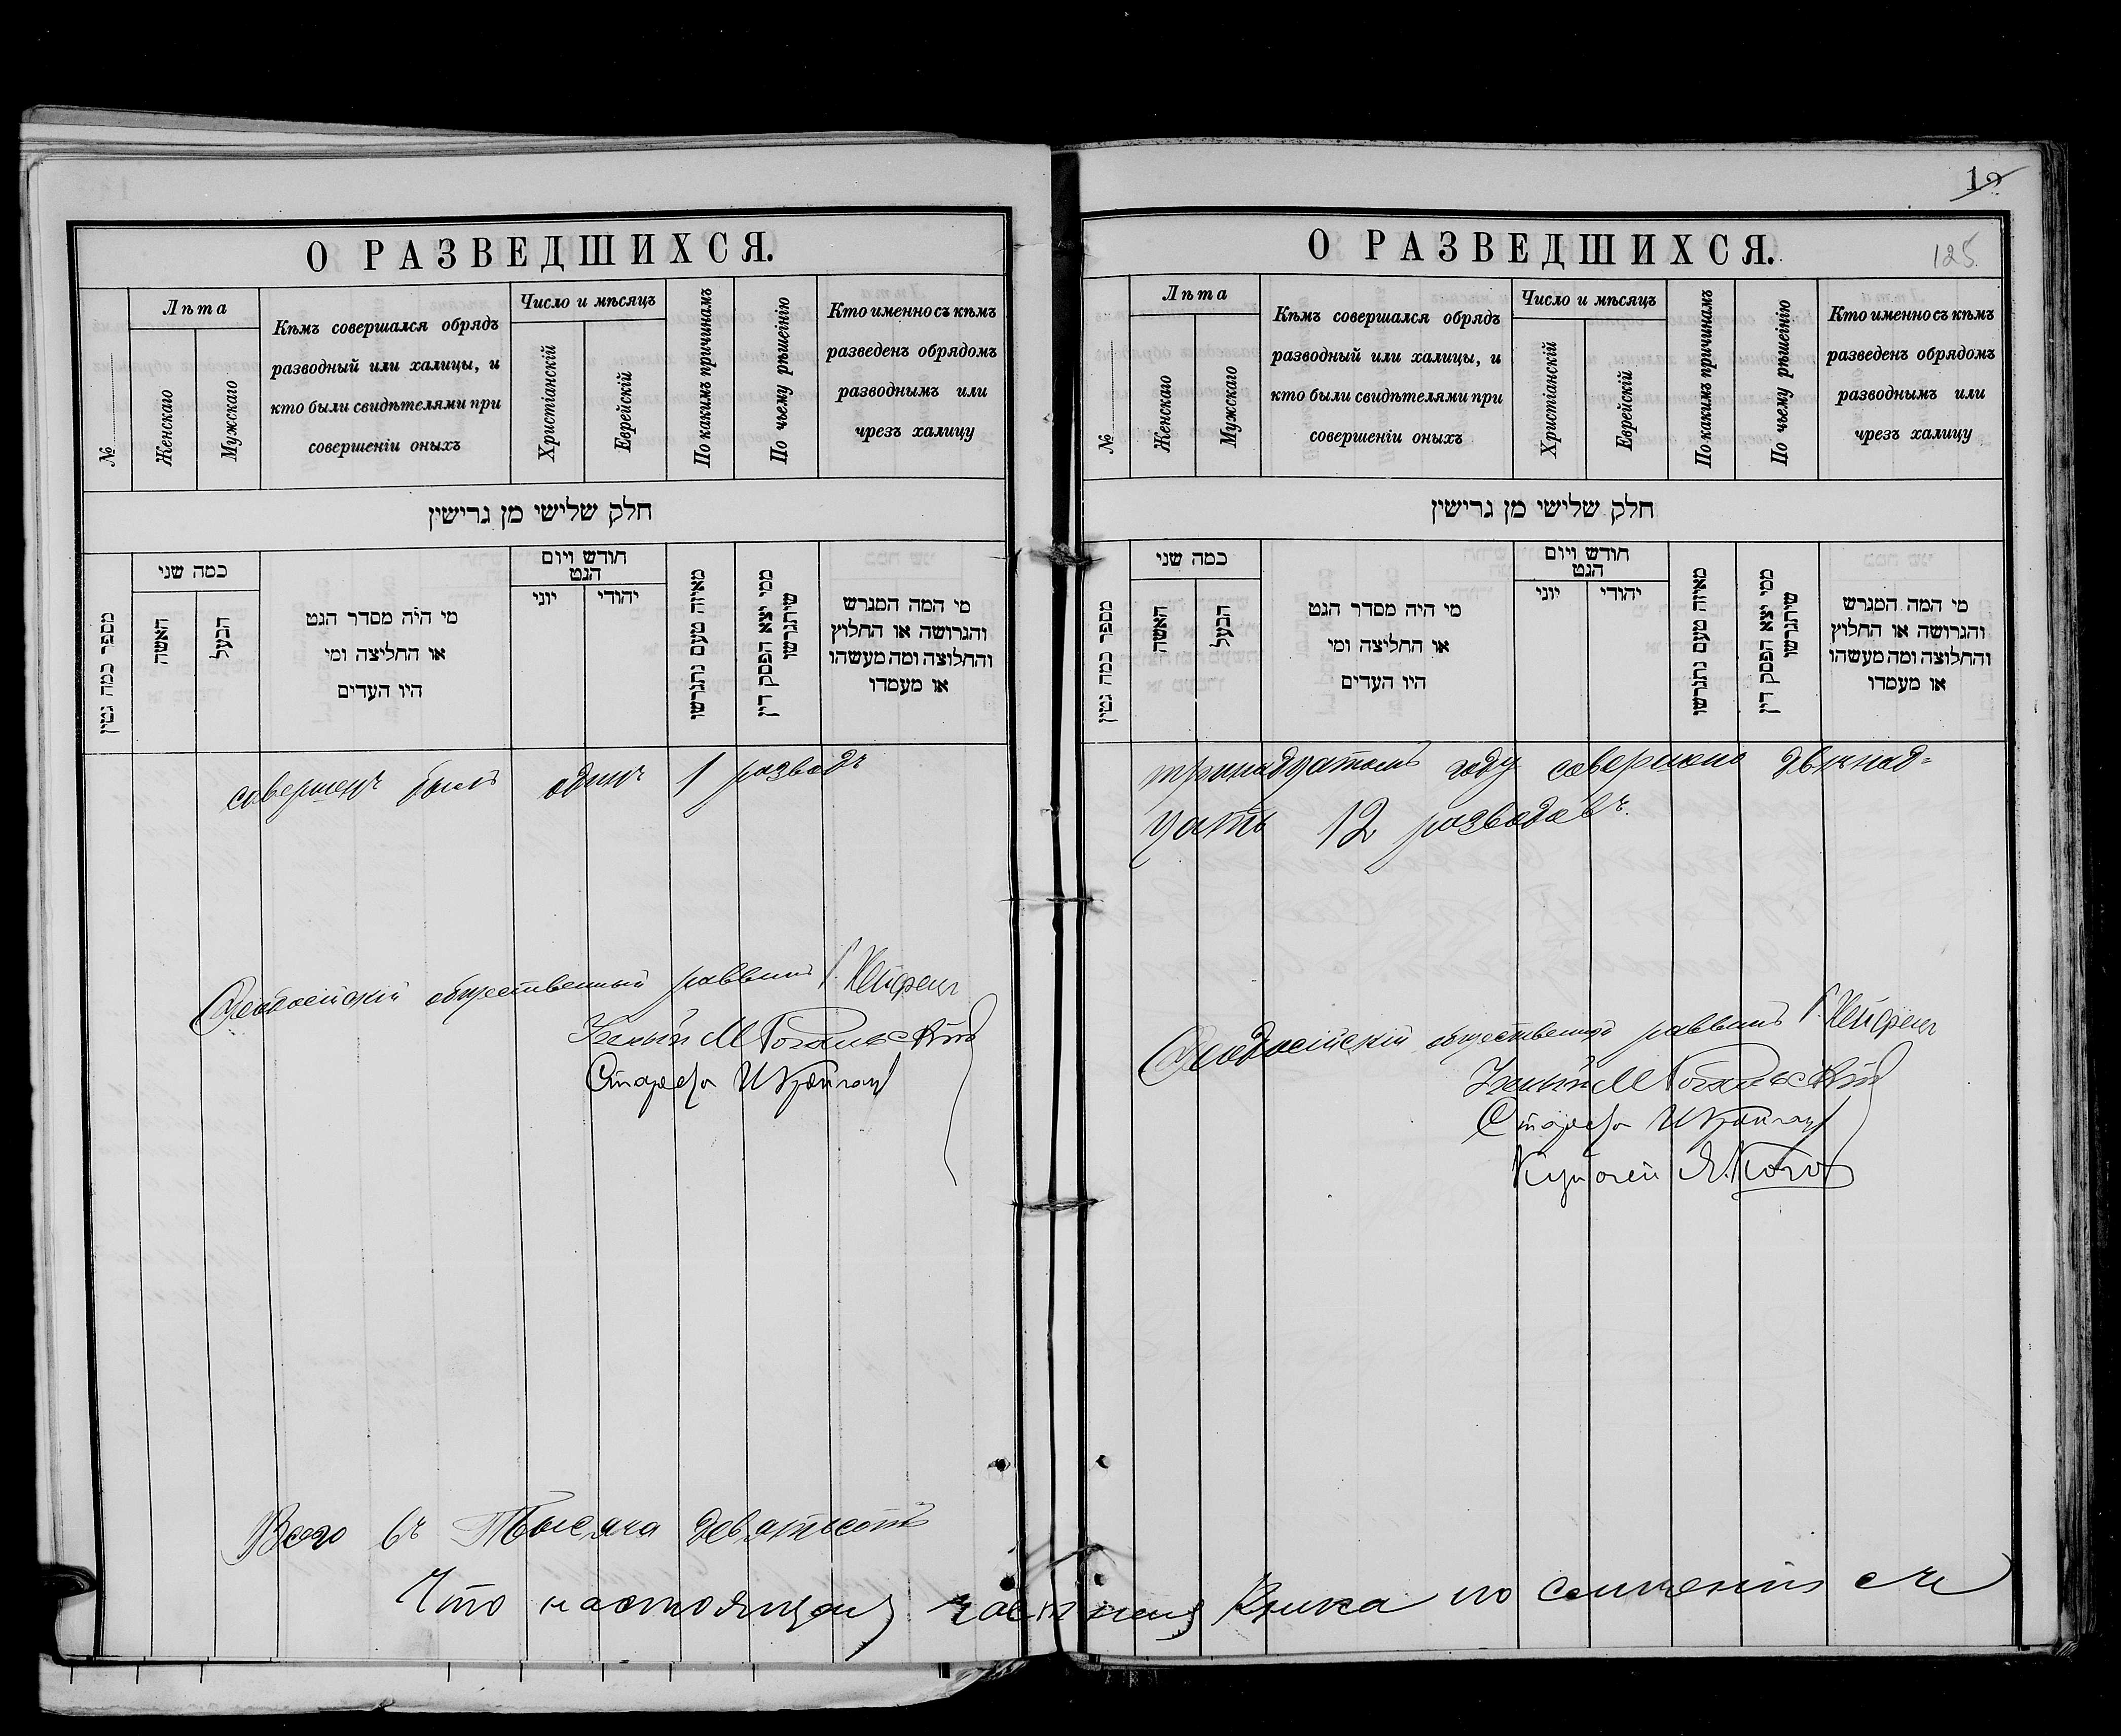 О РАЗВЕДШИХСЯ.
№
Лѣта
Женскаго
Мужскаго
Кѣмъ совершался обрядъ
разводный или халицы, и
кто были свидѣтелями при
совершеніи оныхъ
Число и мѣсяцъ
Христіанскій
Еврейскій
По какимъ причинамъ
По чьему рѣшеінію
Кто именно съ кѣмъ
разведенъ обрядомъ
разводнымъ или
чрезъ халицу
חלק שלישי מן גרישין
מספר כמה גטין
כמה שני
האשה
הבעל
מי היה מסדר הגט
או החליצה ומי
היו העדים
חודש ויום
הגט
יוני
יהודי
מאיזה טעם נתגרשו
ממי יצא הפסק דין
שיתגרשו
מי המה המגרש
והגרושה או החלוץ
והחלוצה ומה מעשהו
או מעמדו
совершенъ былъ одинъ 1 разводъ
Ѳеодосійскій общественный раввинъ
Староста
Всего въ тысяча девятьсотъ
Что настоящая
12
О РАЗВЕДШИХСЯ.
125
№
Лѣта
Женскаго
Мужскаго
Кѣмъ совершался обрядъ
разводный или халицы, и
кто были свидѣтелями при
совершеніи оныхъ
Число и мѣсяцъ
Христіанскій
Еврейскій
По какимъ причинамъ
По чьему рѣшеінію
Кто именно съ кѣмъ
разведенъ обрядомъ
разводнымъ или
чрезъ халицу
חלק שלישי מן גרישין
מספר כמה גטין
כמה שני
האשה
הבעל
מי היה מסדר הגט
או החליצה ומי
היו העדים
חודש ויום
הגט
יוני
יהודי
מאיזה טעם נתגרשו
ממי יצא הפסק דין
שיתגרשו
מי המה המגרש
והגרושה או החלוץ
והחלוצה ומה מעשהו
או מעמדו
тринадцатомъ году совершено двѣнад=
цать 12 разводовъ.
Ѳеодосійскій общественный раввинъ
Староста
книга по